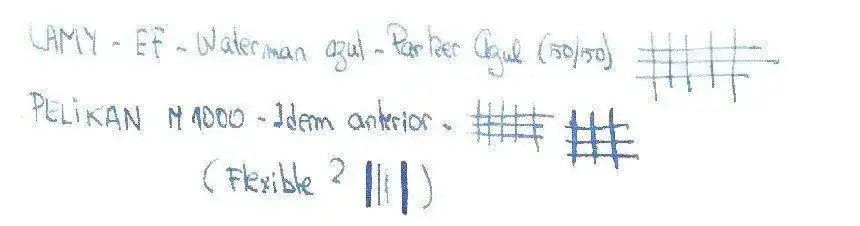 LAMY - EF - Waterman azul - Parker Azul (50/50)
PELIKAN M1000 - Idem anterior.
(Flexible ? )